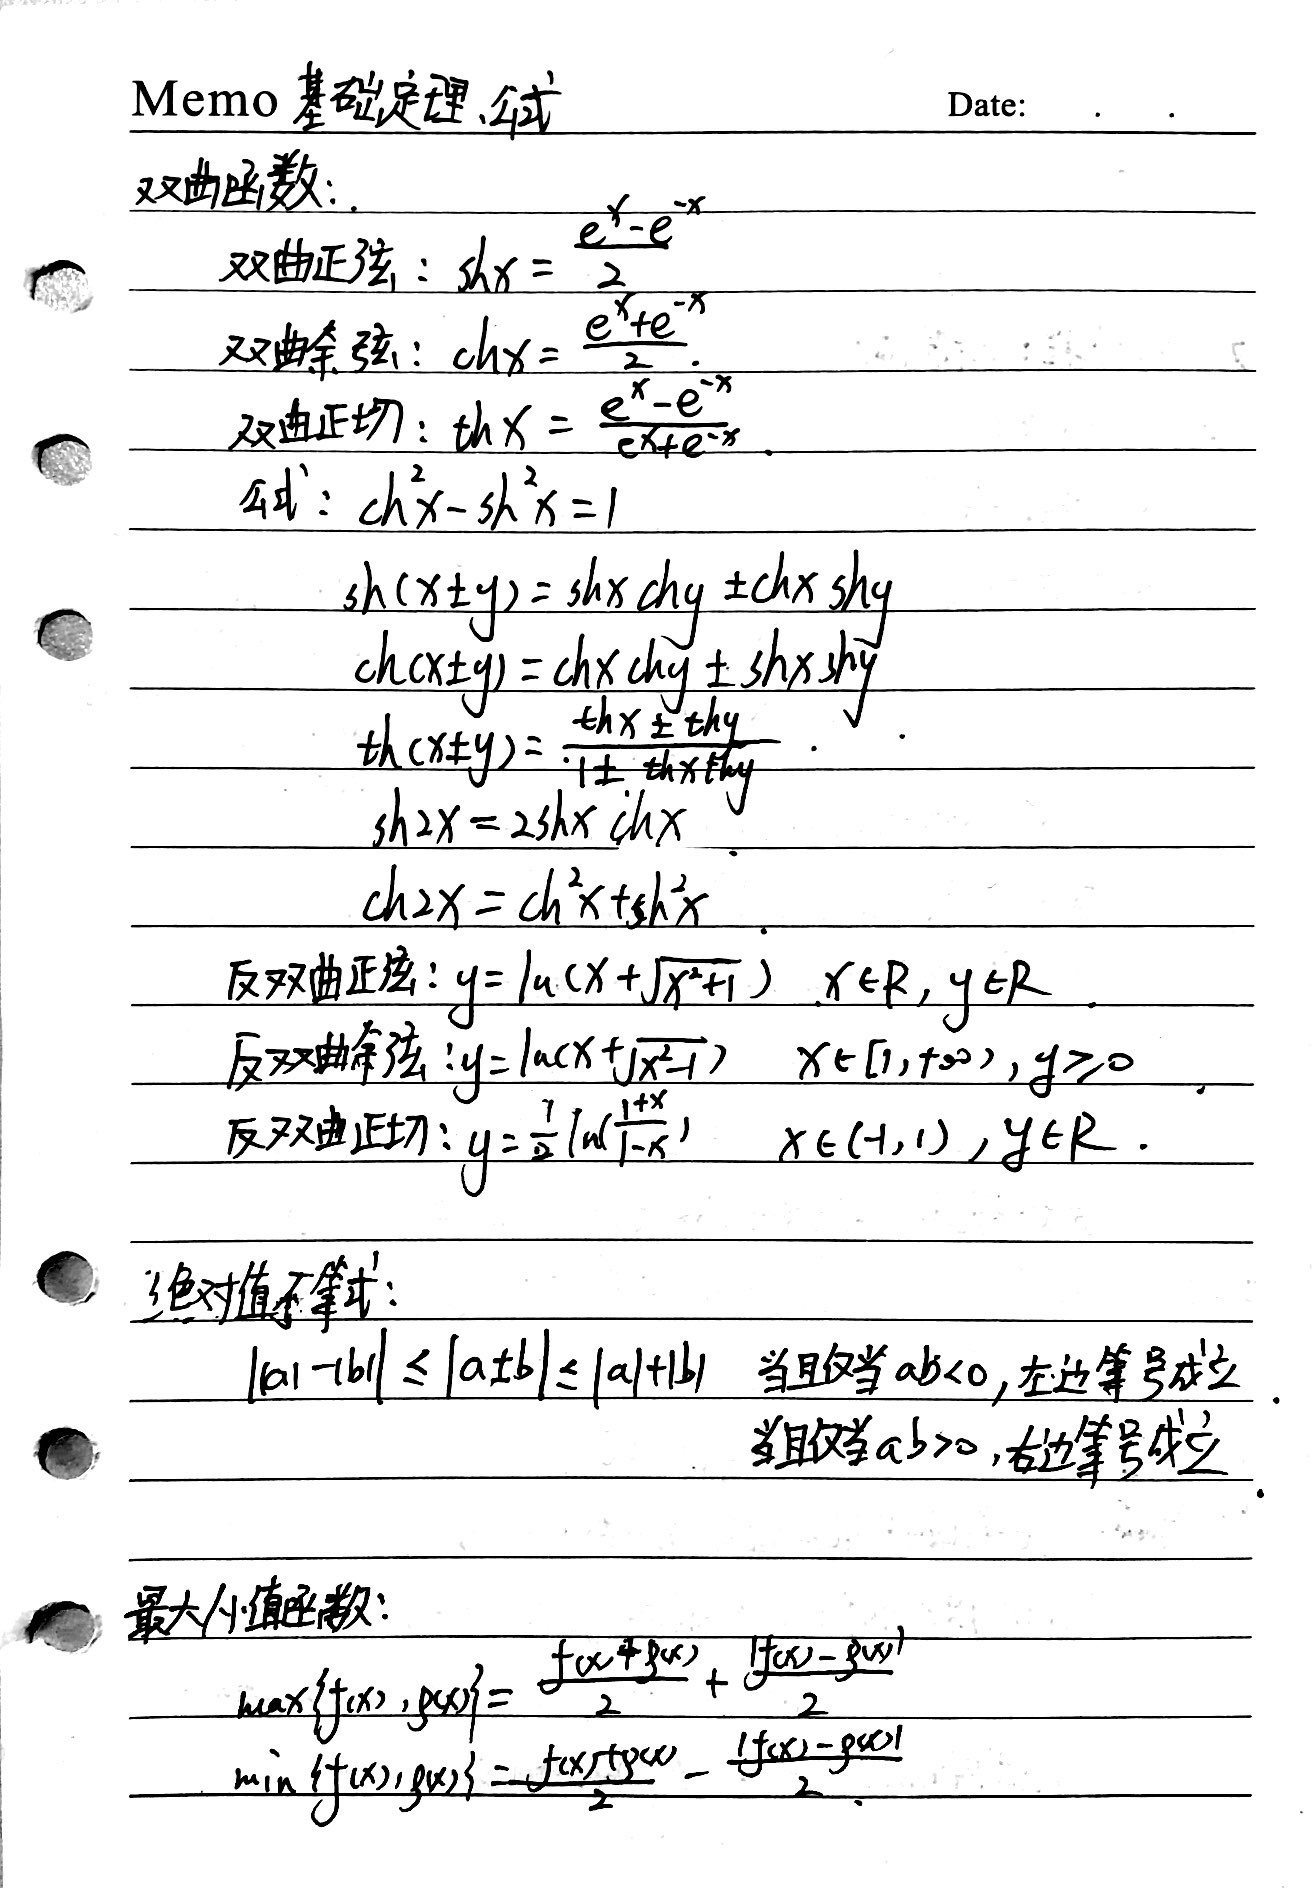 Memo 基础定理、公式 Date: . .
双曲函数:
双曲正弦: shx = (e^x - e^-x)/2
双曲余弦: chx = (e^x + e^-x)/2.
双曲正切: thx = (e^x - e^-x)/(e^x + e^-x).
公式: ch²x - sh²x = 1
sh(x±y) = shx chy ± chx shy
ch(x±y) = chx chy ± shx shy
th(x±y) = (thx ± thy)/(1 ± thx thy).
sh2x = 2shx chx
ch2x = ch²x + sh²x
反双曲正弦: y = ln(x + √(x²+1)) x∈R, y∈R.
反双曲余弦: y = ln(x + √(x²-1)) x∈[1, +∞), y≥0.
反双曲正切: y = 1/2 ln((1+x)/(1-x)) x∈(-1, 1), y∈R.
绝对值不等式:
||a| - |b|| ≤ |a±b| ≤ |a| + |b| 当且仅当ab<0, 左边等号成立.
当且仅当ab>0, 右边等号成立.
最大/小值函数:
max{f(x), g(x)} = (f(x)+g(x))/2 + |f(x)-g(x)|/2
min{f(x), g(x)} = (f(x)+g(x))/2 - |f(x)-g(x)|/2.